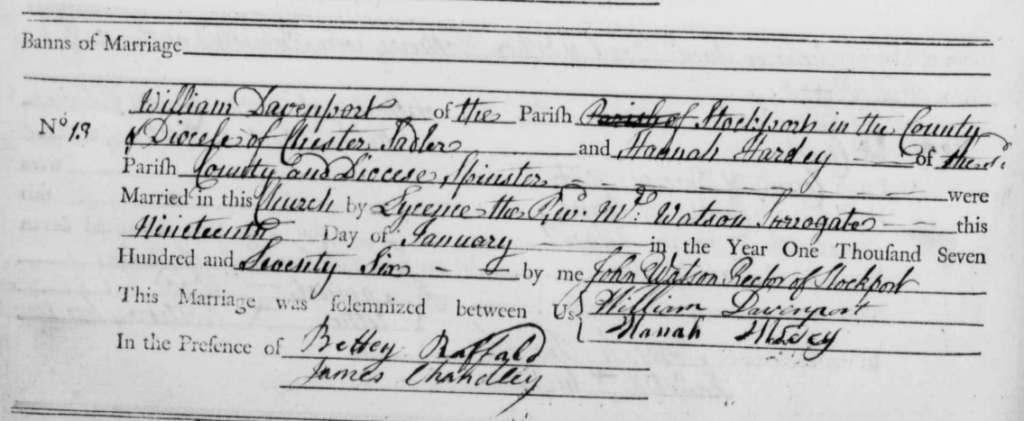 Banns of Marriage
William Davenport of the Parish Parish of Stockporh in the County
No 18
& Diocese of Chester Sadler and Hannah Hardey of the sd.
Parish County and Diocese Spinster were
Married in this Church by Lycence the Revd. Mr. Watson Surrogate this
Nineteenth Day of January in the Year One Thousand Seven
Hundred and Seventy Six by me John Watson Rector of Stockport
This Marriage was solemnized between Us William Davenport
Hanah
In the Presence of Bettey Raffald
James Chandley